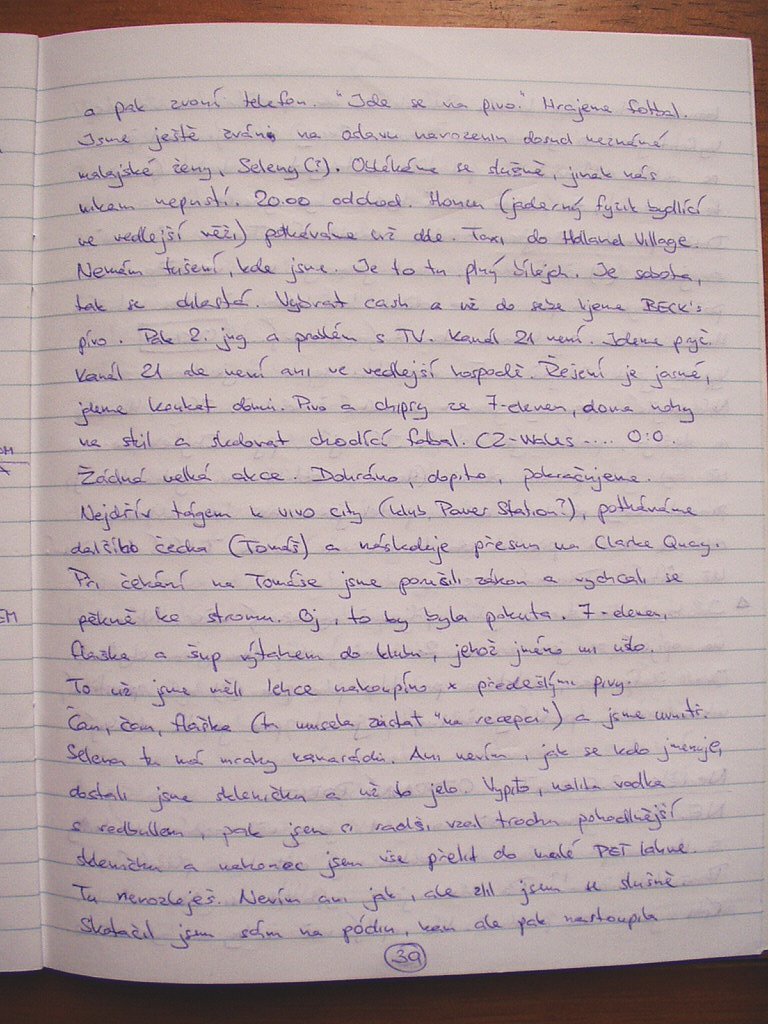 a pak zvoní telefon. "Jde se na pivo." Hrajeme fotbal.
Jsme ještě zváni na oslavu narozenin dosud neznámé
malajské ženy, Seleny(?). Oblékáme se slušně, jinak nás
nikam nepustí. 20.00 odchod. Honzu (jaderný fyzik bydlící
ve vedlejší věži) potkáváme už dole. Taxi do Holland Village.
Nemám tušení, kde jsme. Je to tu plný bílejch. Je sobota,
tak se chlastá. Vybrat cash a už do sebe lijeme BECK's
pivo. Pak 2. jug a problém s TV. Kanál 21 není. Jdeme pryč.
Kanál 21 ale není ani ve vedlejší hospodě. Řešení je jasné,
jdeme koukat domů. Pivo a chipsy ze 7-eleven, doma nohy
na stůl a sledovat chodící fotbal. CZ-Wales .... 0:0.
Žádná velká akce. Dohráno, dopito, pokračujeme.
Nejdřív taxigem k vivo city (klub Power Station?), potkáváme
dalšího čecha (Tomáš) a následuje přesun na Clarke Quay.
Při čekání na Tomáše jsme porušili zákon a vychcali se
pěkně ke stromu. Oj, to by byla pokuta. 7-eleven,
flaška a šup výtahem do klubu, jehož jméno mi ušlo.
To už jsme měli lehce nakoupíno x předešlými pivy.
Čau, čau, flaška (ta musela zůstat "na recepci") a jsme uvnitř.
Selena tu má mraky kamarádů. Ani nevím, jak se kdo jmenuje,
dostali jsme skleničku a už to jelo. Vypito, nalita vodka
s redbullem, pak jsem si radši vzal trochu pohodlnější
skleničku a nakonec jsem vše přelil do malé PET lahve.
Tu nerozleješ. Nevím ani jak, ale zlil jsem se slušně.
Skotačil jsem sám na pódiu, kam ale pak nastoupila
39